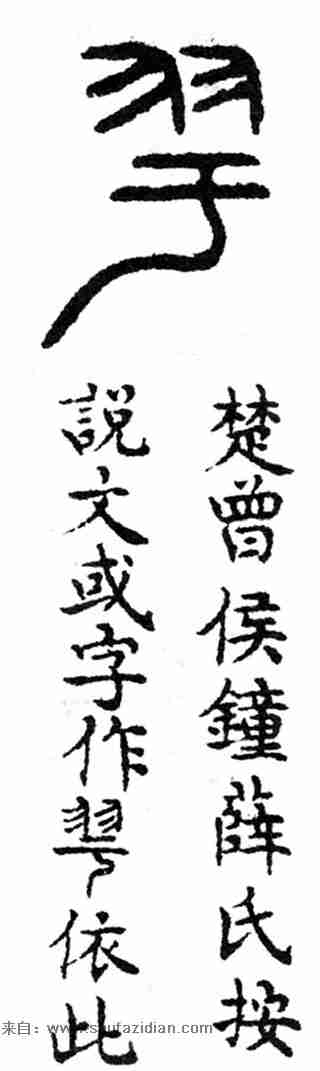 羽于
楚曾侯鐘薛氏按
說文或字作䨒依此
来自：www.shufazidian.com